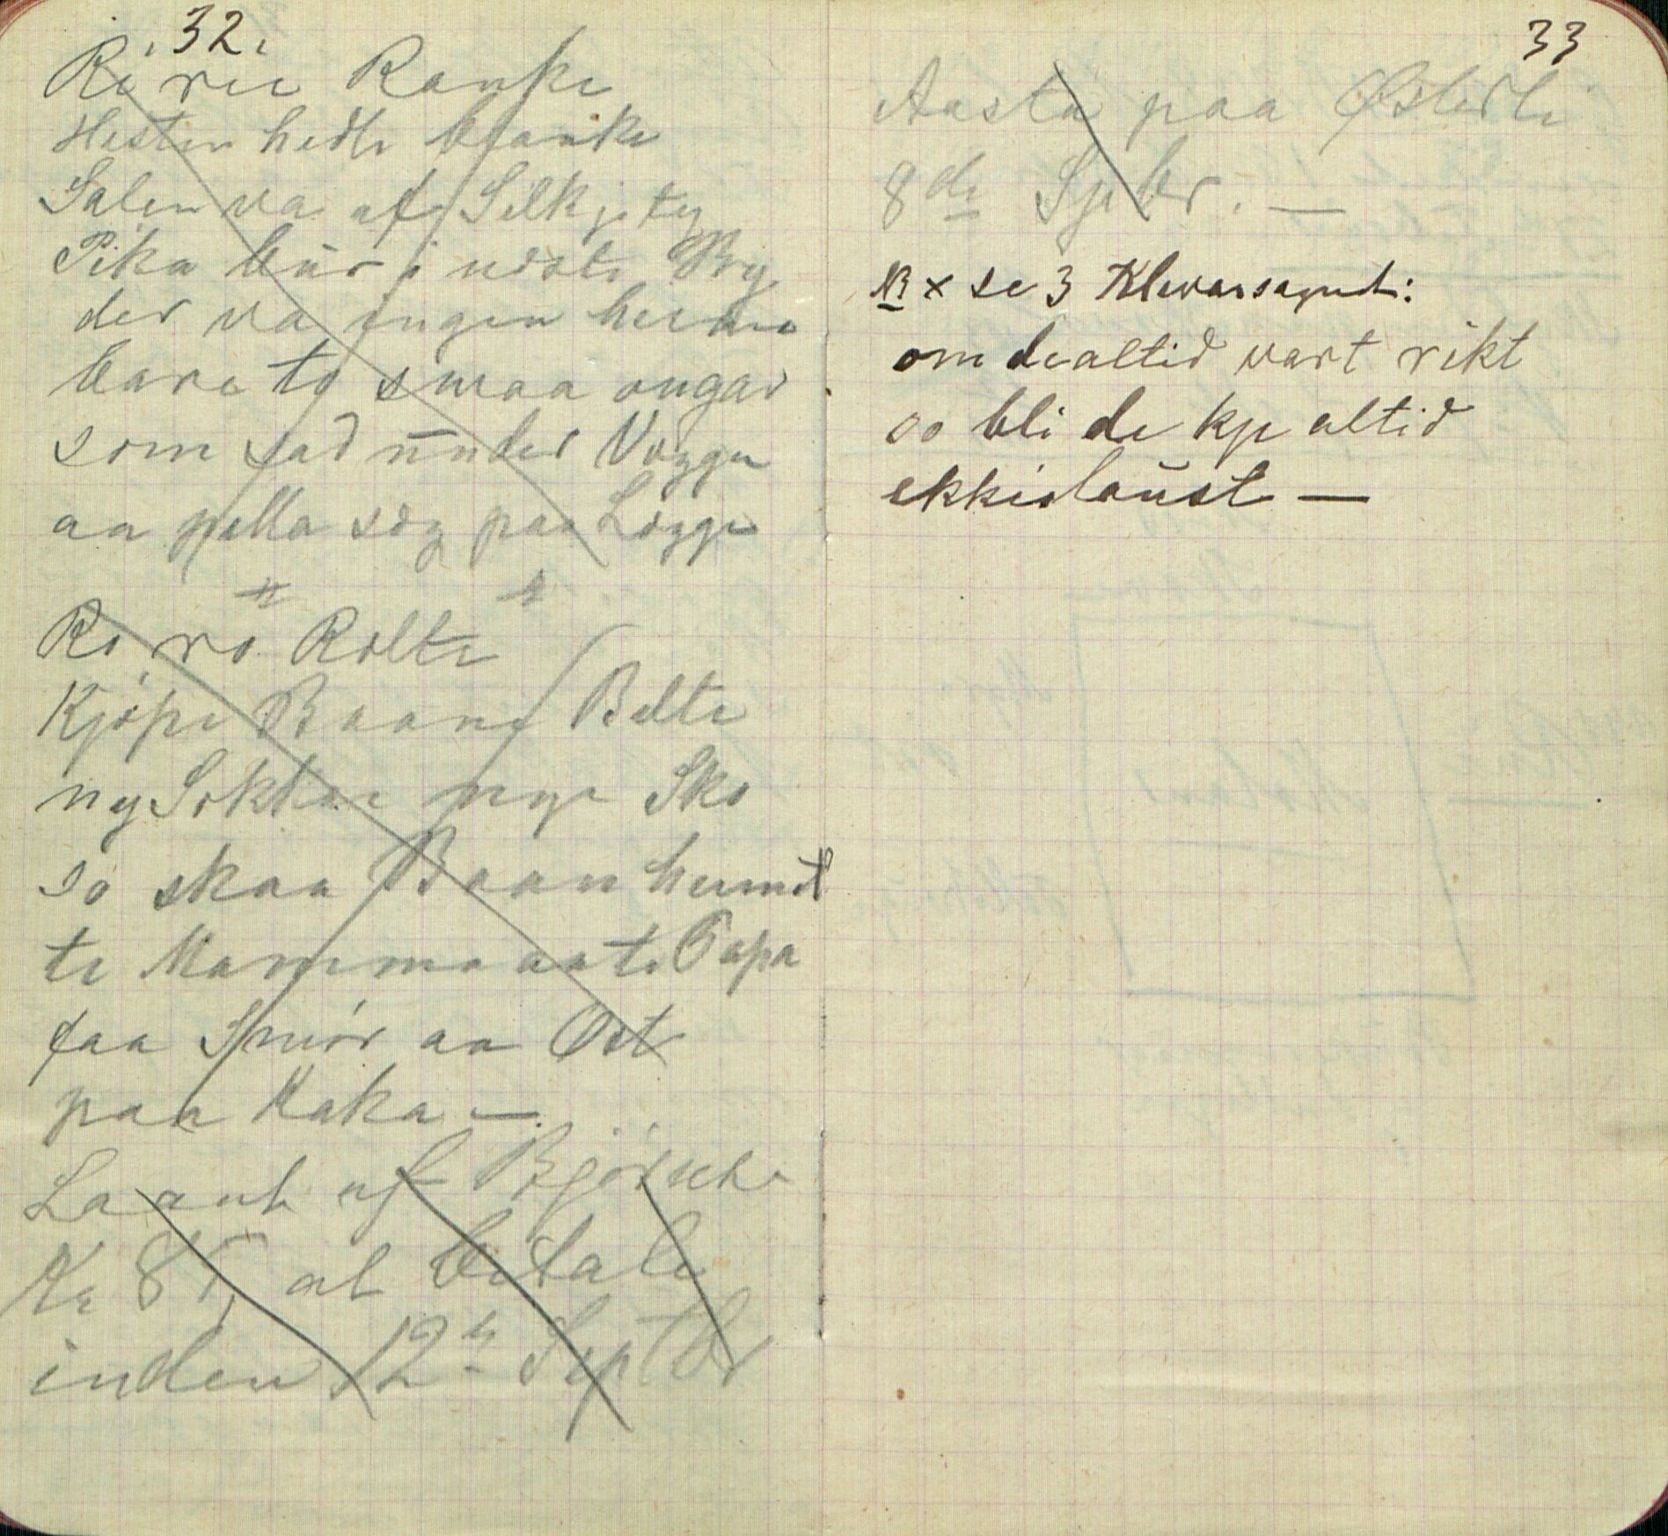 .32.
Ri rii Ranke
Hesten hedte blanke
Salen va af Silkjety
Pika bur i neste By
der va ingen heime
bare to smaa ongar
som sad under Vegge
aa pella seg paa Legge
Ro ro Relte
Kjøpe Baane Belte
ny Sokkar nye Sko
so skaa Baan heim
te Mamma aa te Papa
faa Smör aa Ost
paa Kaka —.
Laant af
Kr 85, at betale
inden 12te SeptBr
33
Aasta paa Østerli
8de —
NB x se 3 Klevarsagnet:
om de altid vart rikt
so bli de kje altid
ekkislaust —